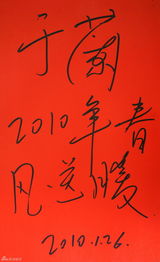 于兰
2010年春
风送暖
2010.1.26.